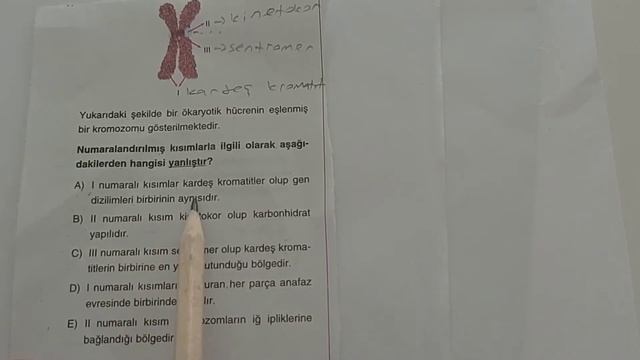 II → kinetokor
III → sentromer
I kardeş kromatit
Yukarıdaki şekilde bir ökaryotik hücrenin eşlenmiş
bir kromozomu gösterilmektedir.
Numaralandırılmış kısımlarla ilgili olarak aşağı-
dakilerden hangisi yanlıştır?
A) I numaralı kısımlar kardeş kromatitler olup gen
dizilimleri birbirinin aynısıdır.
B) II numaralı kısım ki tokor olup karbonhidrat
yapılıdır.
C) III numaralı kısım se ner olup kardeş kroma-
titlerin birbirine en y utunduğu bölgedir.
D) I numaralı kısımları uran her parça anafaz
evresinde birbirinde lır.
E) II numaralı kısım ozomların iğ ipliklerine
bağlandığı bölgedir